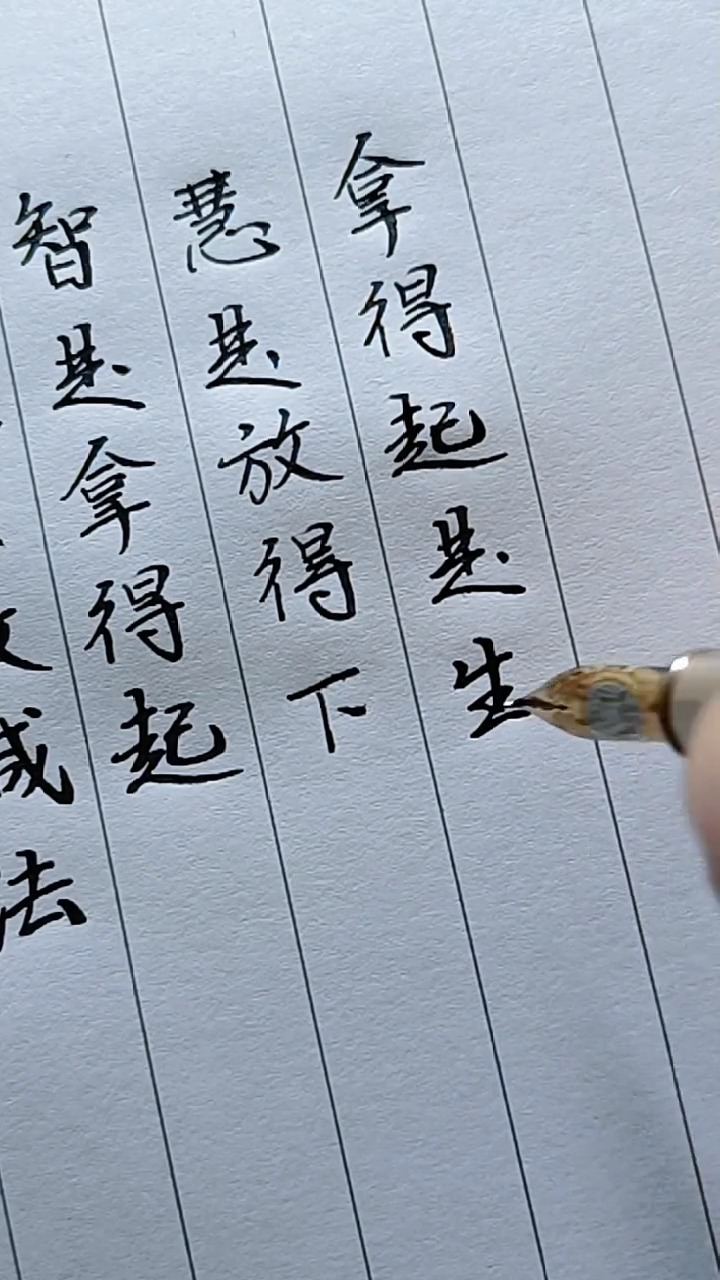 法
智是拿得起
慧是放得下
拿得起是生